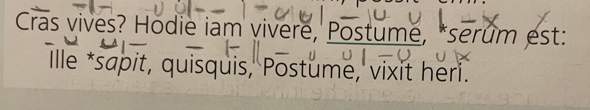 Cras vives? Hodie iam vivere, Postume, *serum est:
ille *sapit, quisquis, Postume, vixit heri.